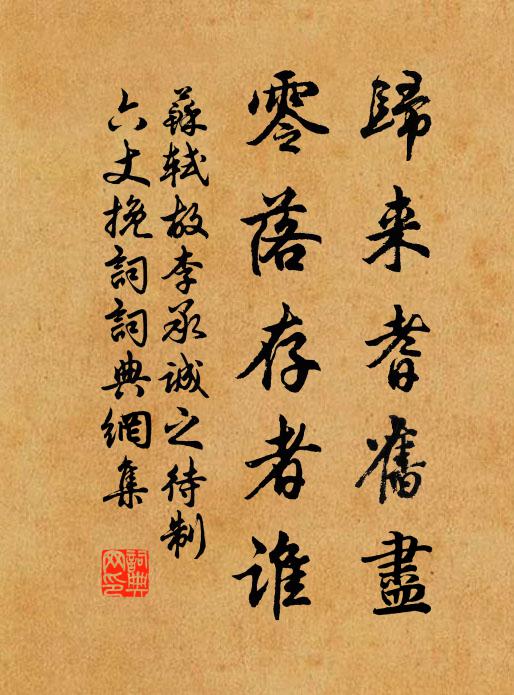 歸来耆舊盡
零落存者誰
蘇軾故李承誠之待制
六丈挽詞詞典網集
詞典
网印